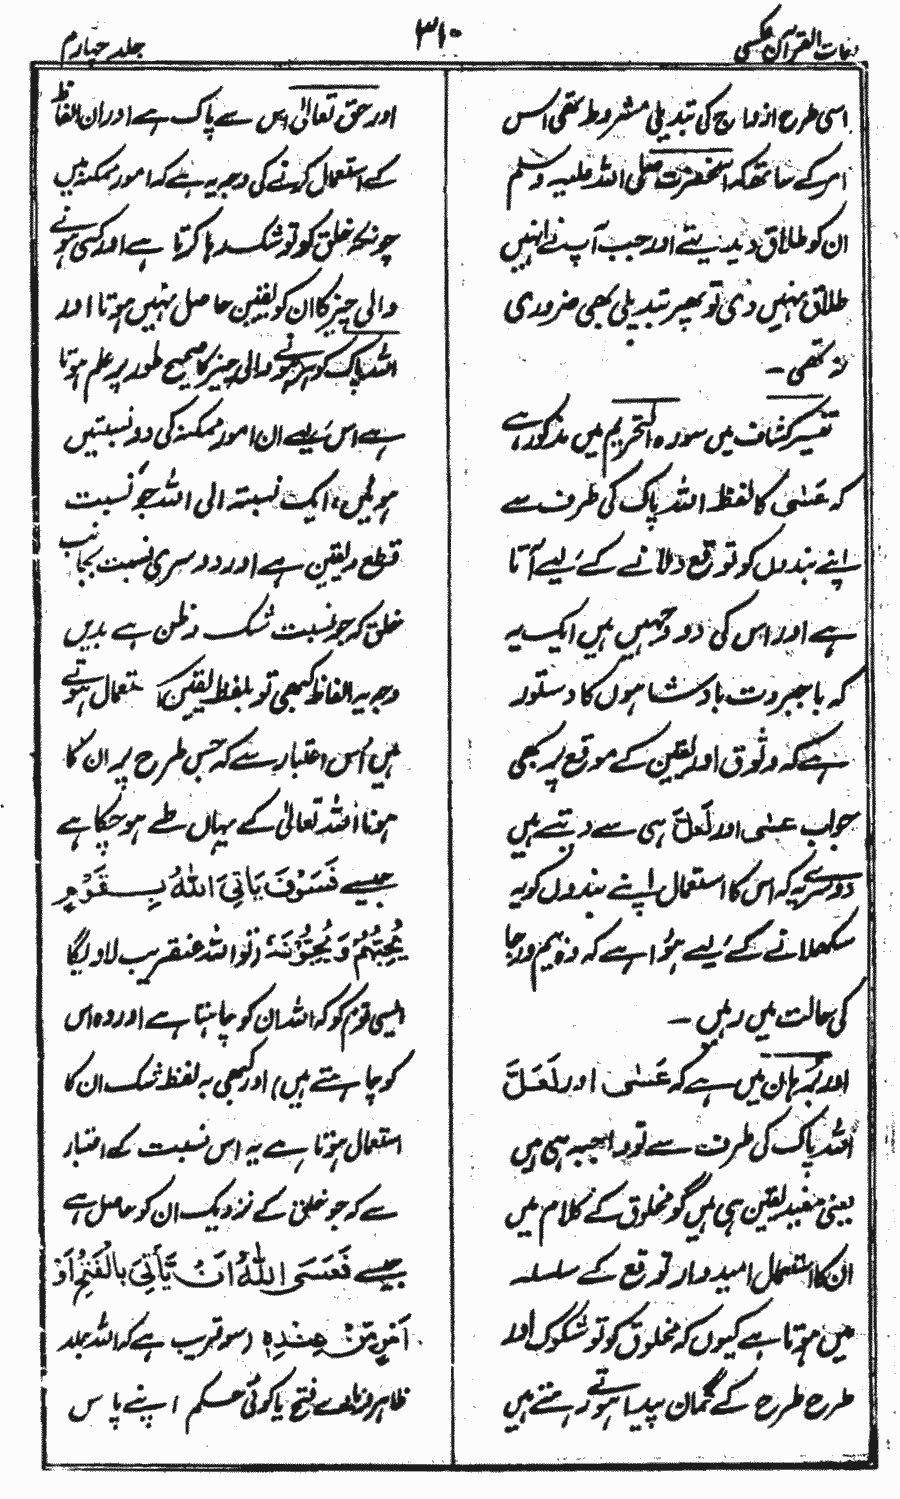 لغات القرآن عکسی
۳۱۰
جلد چہارم
اسی طرح ازواج کی تبدیلی مشروط تھی اس
امر کے ساتھ کہ آنحضرت صلی اللہ علیہ وسلم
ان کو طلاق دیدیتے اور جب آپ نے انہیں
طلاق نہیں دی تو پھر تبدیلی بھی ضروری
نہ تھی۔
تفسیر کشاف میں سورہ التحریم میں مذکور ہے
کہ عَسٰی کا لفظ اللہ پاک کی طرف سے
اپنے بندوں کو توقع دلانے کے لیے آتا
ہے اور اس کی دو وجہیں ہیں ایک یہ
کہ باجبروت بادشاہوں کا دستور
ہے کہ وثوق اور یقین کے موقع پر بھی
جواب عسٰی اور لَعَلَّ ہی سے دیتے ہیں
دوسرے یہ کہ اس کا استعمال اپنے بندوں کو یہ
سکھلانے کے لیے ہُوا ہے کہ وہ بیم و رجا
کی حالت میں رہیں۔
اور بُرہان میں ہے کہ عَسٰی اور لَعَلَّ
اللہ پاک کی طرف سے تو واجب ہی ہیں
یعنی مفید یقین ہی ہیں گو مخلوق کے کلام میں
ان کا استعمال امید اور توقع کے سلسلہ
میں ہوتا ہے کیوں کہ مخلوق کو تو شکوک اور
طرح طرح کے گمان پیدا ہوتے رہتے ہیں
اور حق تعالیٰ اس سے پاک ہے اور ان الفاظ
کے استعمال کرنے کی وجہ یہ ہے کہ امور ممکنہ میں
چونکہ خلق کو تو شک رہا کرتا ہے اور کسی ہونے
والی چیز کا ان کو یقین حاصل نہیں ہوتا اور
اللہ پاک کو ہر ہونے والی چیز کا صحیح طور پر علم ہوتا
ہے اس لیے ان امور ممکنہ کی دو نسبتیں
ہوئیں، ایک نسبتہ الی اللہ جو نسبت
قطع و یقین ہے اور دوسری نسبت بجانب
خلق کہ جو نسبت شک و ظن ہے بدیں
وجہ یہ الفاظ کبھی تو بلفظ یقین کا ستعمال ہوتے
ہیں اُس اعتبار سے کہ جس طرح پر ان کا
ہونا اللہ تعالیٰ کے یہاں طے ہو چکا ہے
جیسے فَسَوْفَ يَاْتِی اللّٰهُ بِقَوْمٍ
يُحِبُّهُمْ وَيُحِبُّوْنَهٗ (تو اللہ عنقریب لاویگا
ایسی قوم کو کہ اللہ ان کو چاہتا ہے اور وہ اس
کو چاہتے ہیں) اور کبھی بہ لفظ شک ان کا
استعمال ہوتا ہے یہ اس نسبت کے اعتبار
سے کہ جو خلق کے نزدیک ان کو حاصل ہے
جیسے فَعَسَی اللّٰهُ اَنْ يَّاْتِیَ بِالْفَتْحِ اَوْ
اَمْرٍ مِّنْ عِنْدِهٖ (سو قریب ہے کہ اللہ جلد
ظاہر فرماوے فتح یا کوئی حکم اپنے پاس